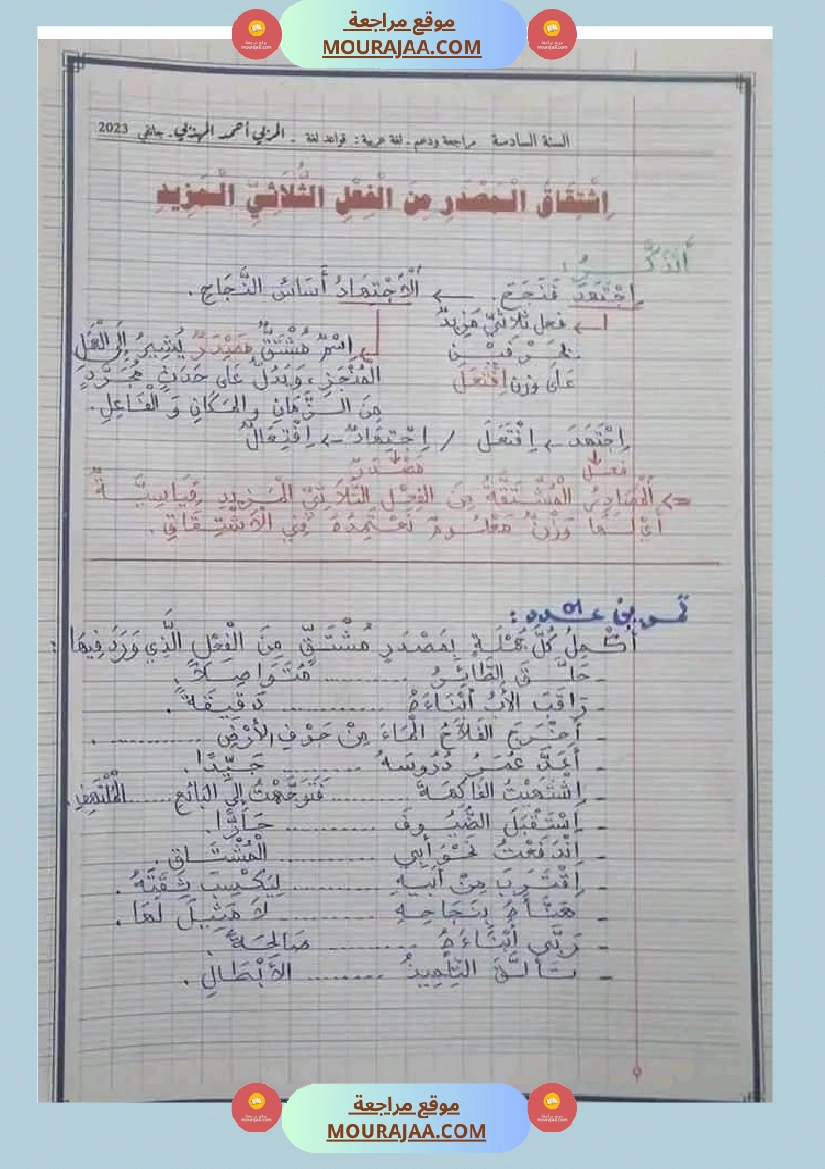 موقع مراجعة
MOURAJAA.COM
السنة السادسة مراجعة ودعم - لغة عربية: قواعد لغة - المربي أحمد المهذبي - جانفي 2023
اِشْتِقَاقُ الْمَصْدَرِ مِنَ الْفِعْلِ الثُّلَاثِيِّ الْمَزِيدِ
أَتَذَكَّرُ:
اِجْتَهَدَ فَنَجَحَ. ← اَلْاِجْتِهَادُ أَسَاسُ النَّجَاحِ.
فعل ثلاثيّ مَزِيدٌ
بحَرْفَيْنِ
عَلَى وزن اِفْتَعَلَ
اِسْمٌ مُشْتَقٌّ مَصْدَرٌ يُشِيرُ إِلَى الْفِعْلِ
الْمُنْجَزِ، وَيَدُلُّ عَلَى حَدَثٍ مُجَرَّدٍ
مِنَ الزَّمَانِ والمَكَانِ وَالْفَاعِلِ.
اِجْتَهَدَ ← اِفْتَعَلَ / اِجْتِهَادٌ ← اِفْتِعَالٌ
فعل مَصْدَرٌ
⇐ اَلْمَصَادِرُ الْمُشْتَقَّةُ مِنَ الفِعْلِ الثُّلَاثِيِّ الْمَزِيدِ قِيَاسِيَّةٌ
أيْ لَهَا وَزْنٌ مَعْلُومٌ نَعْتَمِدُهُ فِي الاشْتِقَاقِ.
تمرين عدد 01:
أُكْمِلُ كُلَّ جُمْلَةٍ بِمَصْدَرٍ مُشْتَقٍّ مِنَ الْفِعْلِ الَّذِي وَرَدَ فِيهَا:
- حَلَّقَ الطَّائِرُ ........... مُتَوَاصِلًا.
- رَاقَبَ الأَبُ أَبْنَاءَهُ ........... دَقِيقَةً.
- اِسْتَخْرَجَ الفَلَّاحُ الْمَاءَ مِنْ جَوْفِ الأَرْضِ ...........
- أَعَدَّ عُمَرُ دُرُوسَهُ ........... جَيِّدًا.
- اِشْتَهَيْتُ الفَاكِهَةَ ........... فَتَوَجَّهْتُ إلى البائع ....... الْمُتَلَهِّفِ.
- اِسْتَقْبَلَ الضُّيُوفَ ........... حَارًّا.
- اِنْدَفَعْتُ نَحْوَ أَبِي ........... الْمُشْتَاقِ.
- اِقْتَرَبَ مِنْ أَبِيهِ ........... لِيَكْسِبَ ثِقَتَهُ.
- هَنَّأَهُ بِنَجَاحِهِ ........... لَا مَثِيلَ لَهَا.
- رَبَّى أَبْنَاءَهُ ........... صَالِحَةً.
- تَأَلَّقَ التِّلْمِيذُ ........... الأَبْطَالِ.
موقع مراجعة
MOURAJAA.COM